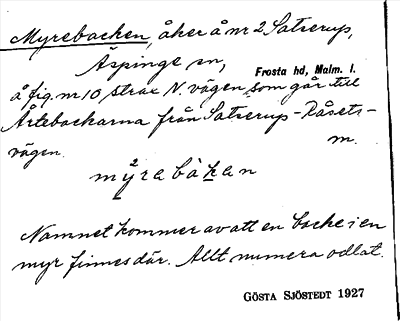 Myrebacken, åker å nr 2 Satserup,
Äspinge sn, Frosta hd, Malm. l.
å fig. nr 10 strax N. vägen som går till
Ärtebackarna från Satserup-Råsets-
vägen. m.
mỳrabàkan
Namnet kommer av att en backe i en
myr finnes där. Allt numera odlat.
GÖSTA SJÖSTEDT 1927